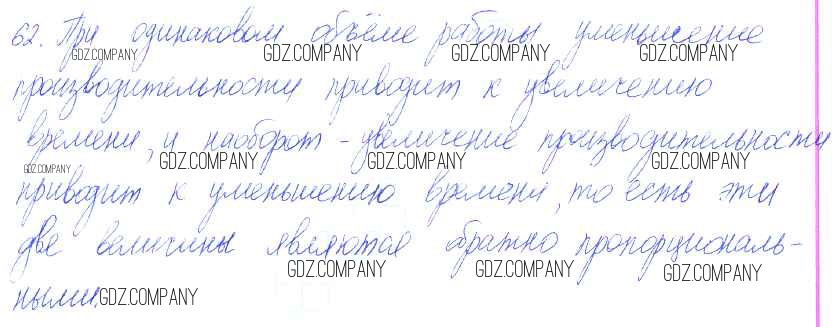 62. При одинаковом объёме работы уменьшение
GDZ.COMPANY GDZ.COMPANY GDZ.COMPANY GDZ.COMPANY
производительности приводит к увеличению
времени, и наоборот - увеличение производительности
GDZ.COMPANY GDZ.COMPANY GDZ.COMPANY GDZ.COMPANY
приводит к уменьшению времени, то есть эти
две величины являются обратно пропорциональ-
GDZ.COMPANY GDZ.COMPANY GDZ.COMPANY
ными. GDZ.COMPANY